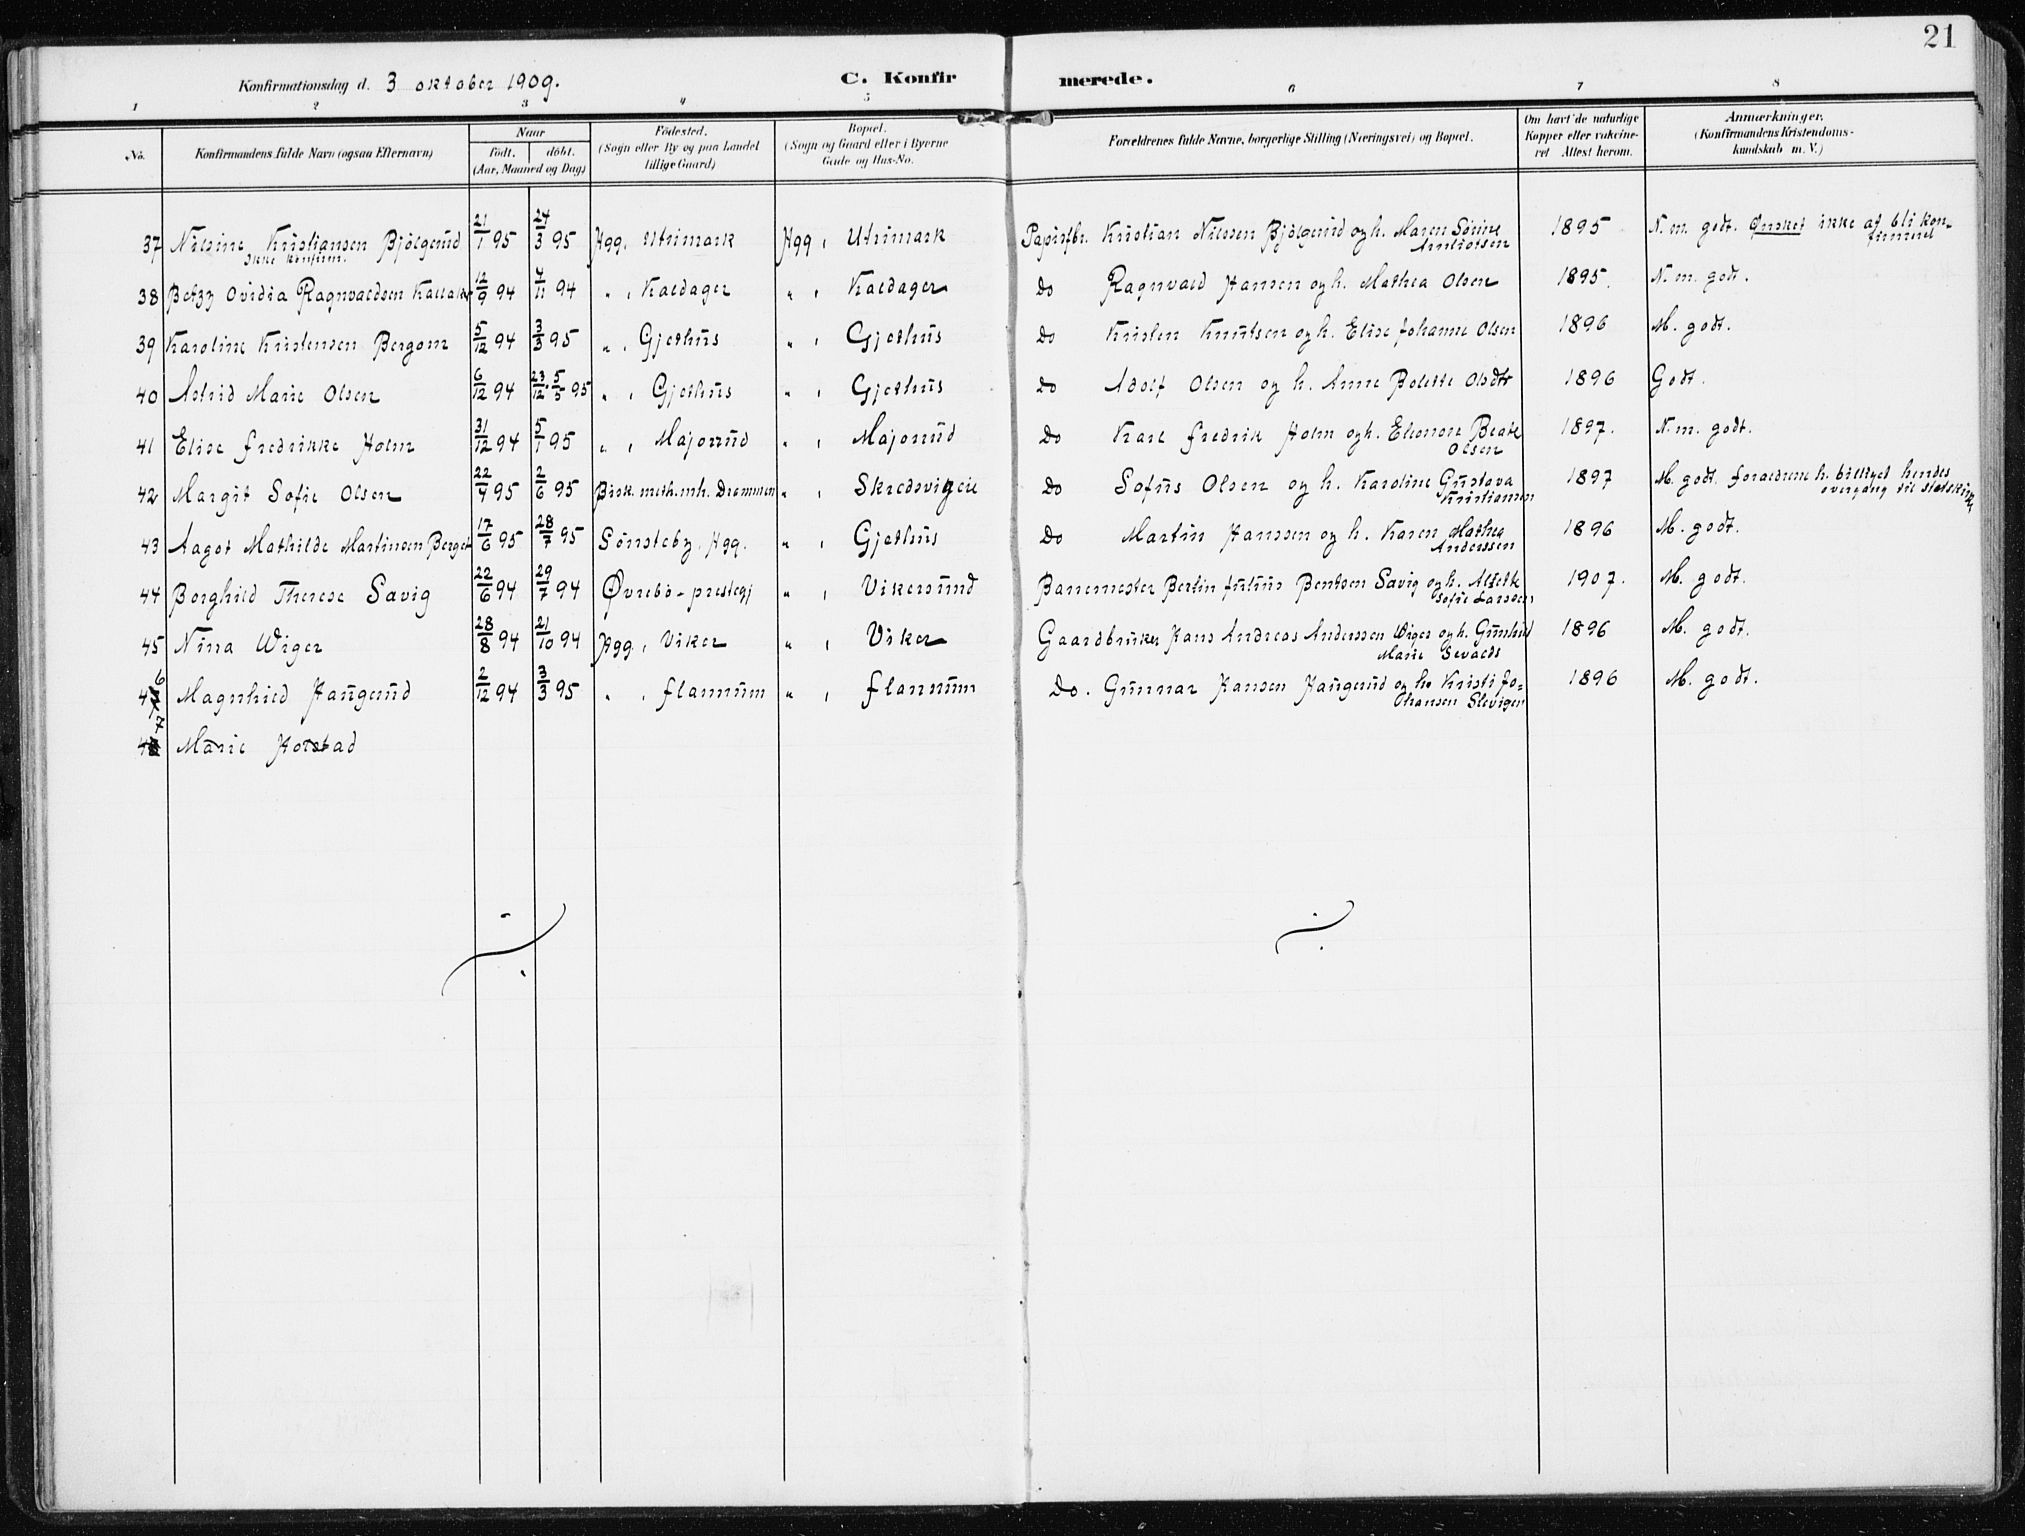 21
Konfirmationsdag d. 3 oktober 1909. C. Konfir merede.
1 2 3 4 5 6 7 8
No. Konfirmandens fulde Navn (ogsaa Efternavn) Naar födt. döbt. (Aar, Maaned og Dag) Födested. (Sogn eller By og paa Landet tillige Gaard) Bopæl. (Sogn og Gaard eller i Byerne Gade og Hus-No. Forældrenes fulde Navne, borgerlige Stilling (Næringsvei) og Bopæl. Om havt de naturlige Kopper eller vakcineret Attest herom. Anmærkninger. (Konfirmandens Kristendomskundskab m. V.)
37 Nilsine Kristiansen Bjölgerud 21/1 95 24/3 95 Hgg, Utrimark Hgg, Utrimark Papirfbr. Kristian Nilssen Bjölgerud og h. Maren Sörine 1895 N. m. godt. Önsket ikke at bli kon-
ikke konfirm. firmeret
38 Betzy Ovidia Ragnvaldsen 12/9 94 4/11 94 " , Kaldager " , Kaldager do Ragnvald Hansen og h. Mathea Olsen 1895. N. m. godt.
39 Karoline Kristensen Bergom 5/12 94 3/3 95 " , Gjethus " , Gjethus do Kristen Knutsen og h. Elise Johanne Olsen 1896 M. godt.
40 Astrid Marie Olsen 6/12 94 23/12 5/5 95 " , Gjethus " , Gjethus do Adolf Olsen og h. Anne Bolette Olsdtr 1896 Godt.
41 Elise Fredrikke Holm 31/12 94 5/1 95 " , Majorud " , Majorud do Karl Fredrik Holm og h. Elenore Beate 1897. N. m. godt.
Olsen
42 Margit Sofie Olsen 22/4 95 2/6 95 Bisk. meth. mh. Drammen " , Skredsvigeie do Sofus Olsen og h. Karoline Gustava 1897 M. godt. foraeldrene h. billiget hendes
Kristiansen overgang til statskirk
43 Aagot Mathilde Martinsen Berget 17/6 95 28/7 95 Sönsteby, Hgg. " , Gjethus do Martin Hanssen og h. Karen Mathea 1896 M. godt.
Anderssen
44 Borghild Therese Savig 22/6 94 29/7 94 Övrebö-prestegj " , Vikersund Banemester Bertin Julius Bentsen Savig og h. Alette 1907. M. godt.
Sofie Larssen
45 Nina Wiger 28/8 94 21/10 94 Hgg, Viker " , Viker Gaardbruker Hans Andreas Anderssen Wiger og h. Gunhild 1896 M. godt.
Marie Sevalds
46 Magnhild Haugerud 2/12 94 3/3 95 " , Flannum " , Flannum Do. Gunnar Hansen Haugerud og h. Kristi Jo- 1896 M. godt.
hansen Slevigen
47 Marie Horstad